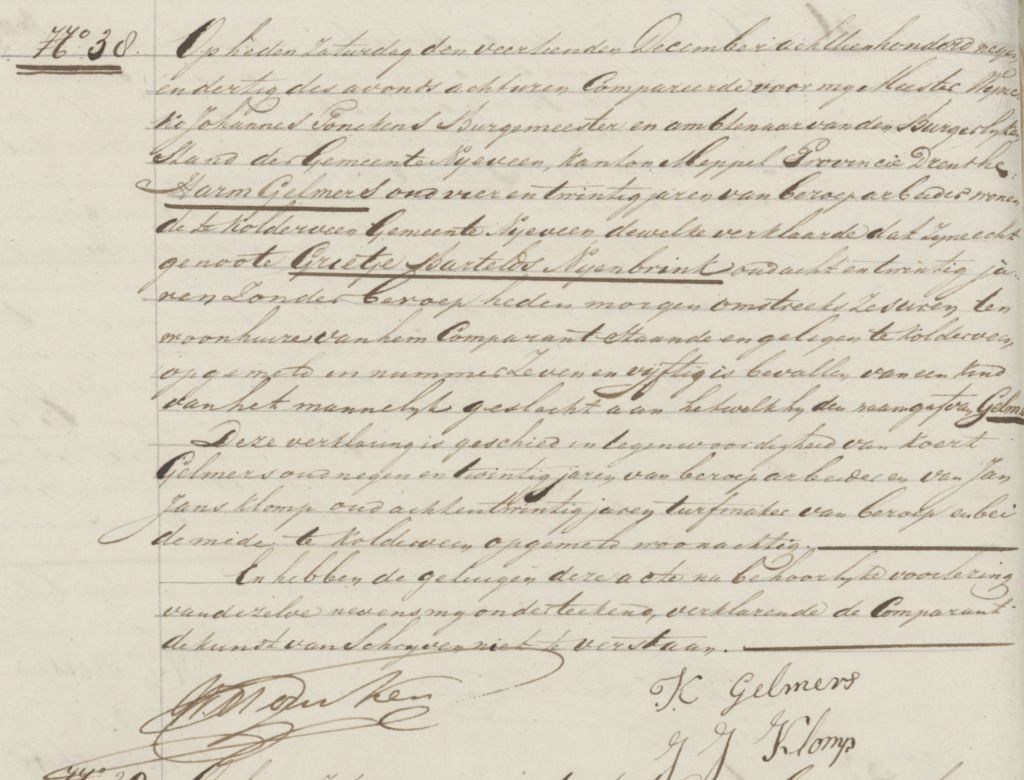 No 38. Op heden Zaturdag den veertienden December achttienhonderd negen
en dertig des avonds acht uren Compareerde voor my Meester Wyne
ko Johannes Tonckens Burgemeester en ambtenaar van den Burgerlyken
Stand der Gemeente Nyeveen, Kanton Meppel Provincie Drenthe
Harm Gelmers oud vier en twintig jaren van beroep arbeider wonen
de te Kolderveen Gemeente Nyeveen dewelke verklaarde dat Zyne echt
genoote Grietje Bartelds Nyenbrink oud acht en twintig ja
ren Zonder beroep heden morgen omstreeks Zes uren ten
woonhuize van hem Comparant Staande en gelegen te Kolderveen
opgemeld in nummer Zeven en vyftig is bevallen van een Kind
van het mannelyk geslacht aan hetwelk hy den naam gaf van Gelme
Deze verklaring is geschied in tegenwoordigheid van Koert
Gelmers oud negen en twintig jaren van beroep arbeider en van Jan
Jans Klomp oud acht en twintig jaren turfmaker van beroep en bei
de mede te Kolderveen opgemeld woonachtig.
En hebben de getuigen deze acte na behoorlyke voorlezing
van dezelve nevens my onderteekend, verklarende de Comparant
de kunst van Schryven niet te verstaan.
WJTonckens
K Gelmers
J J Klomp